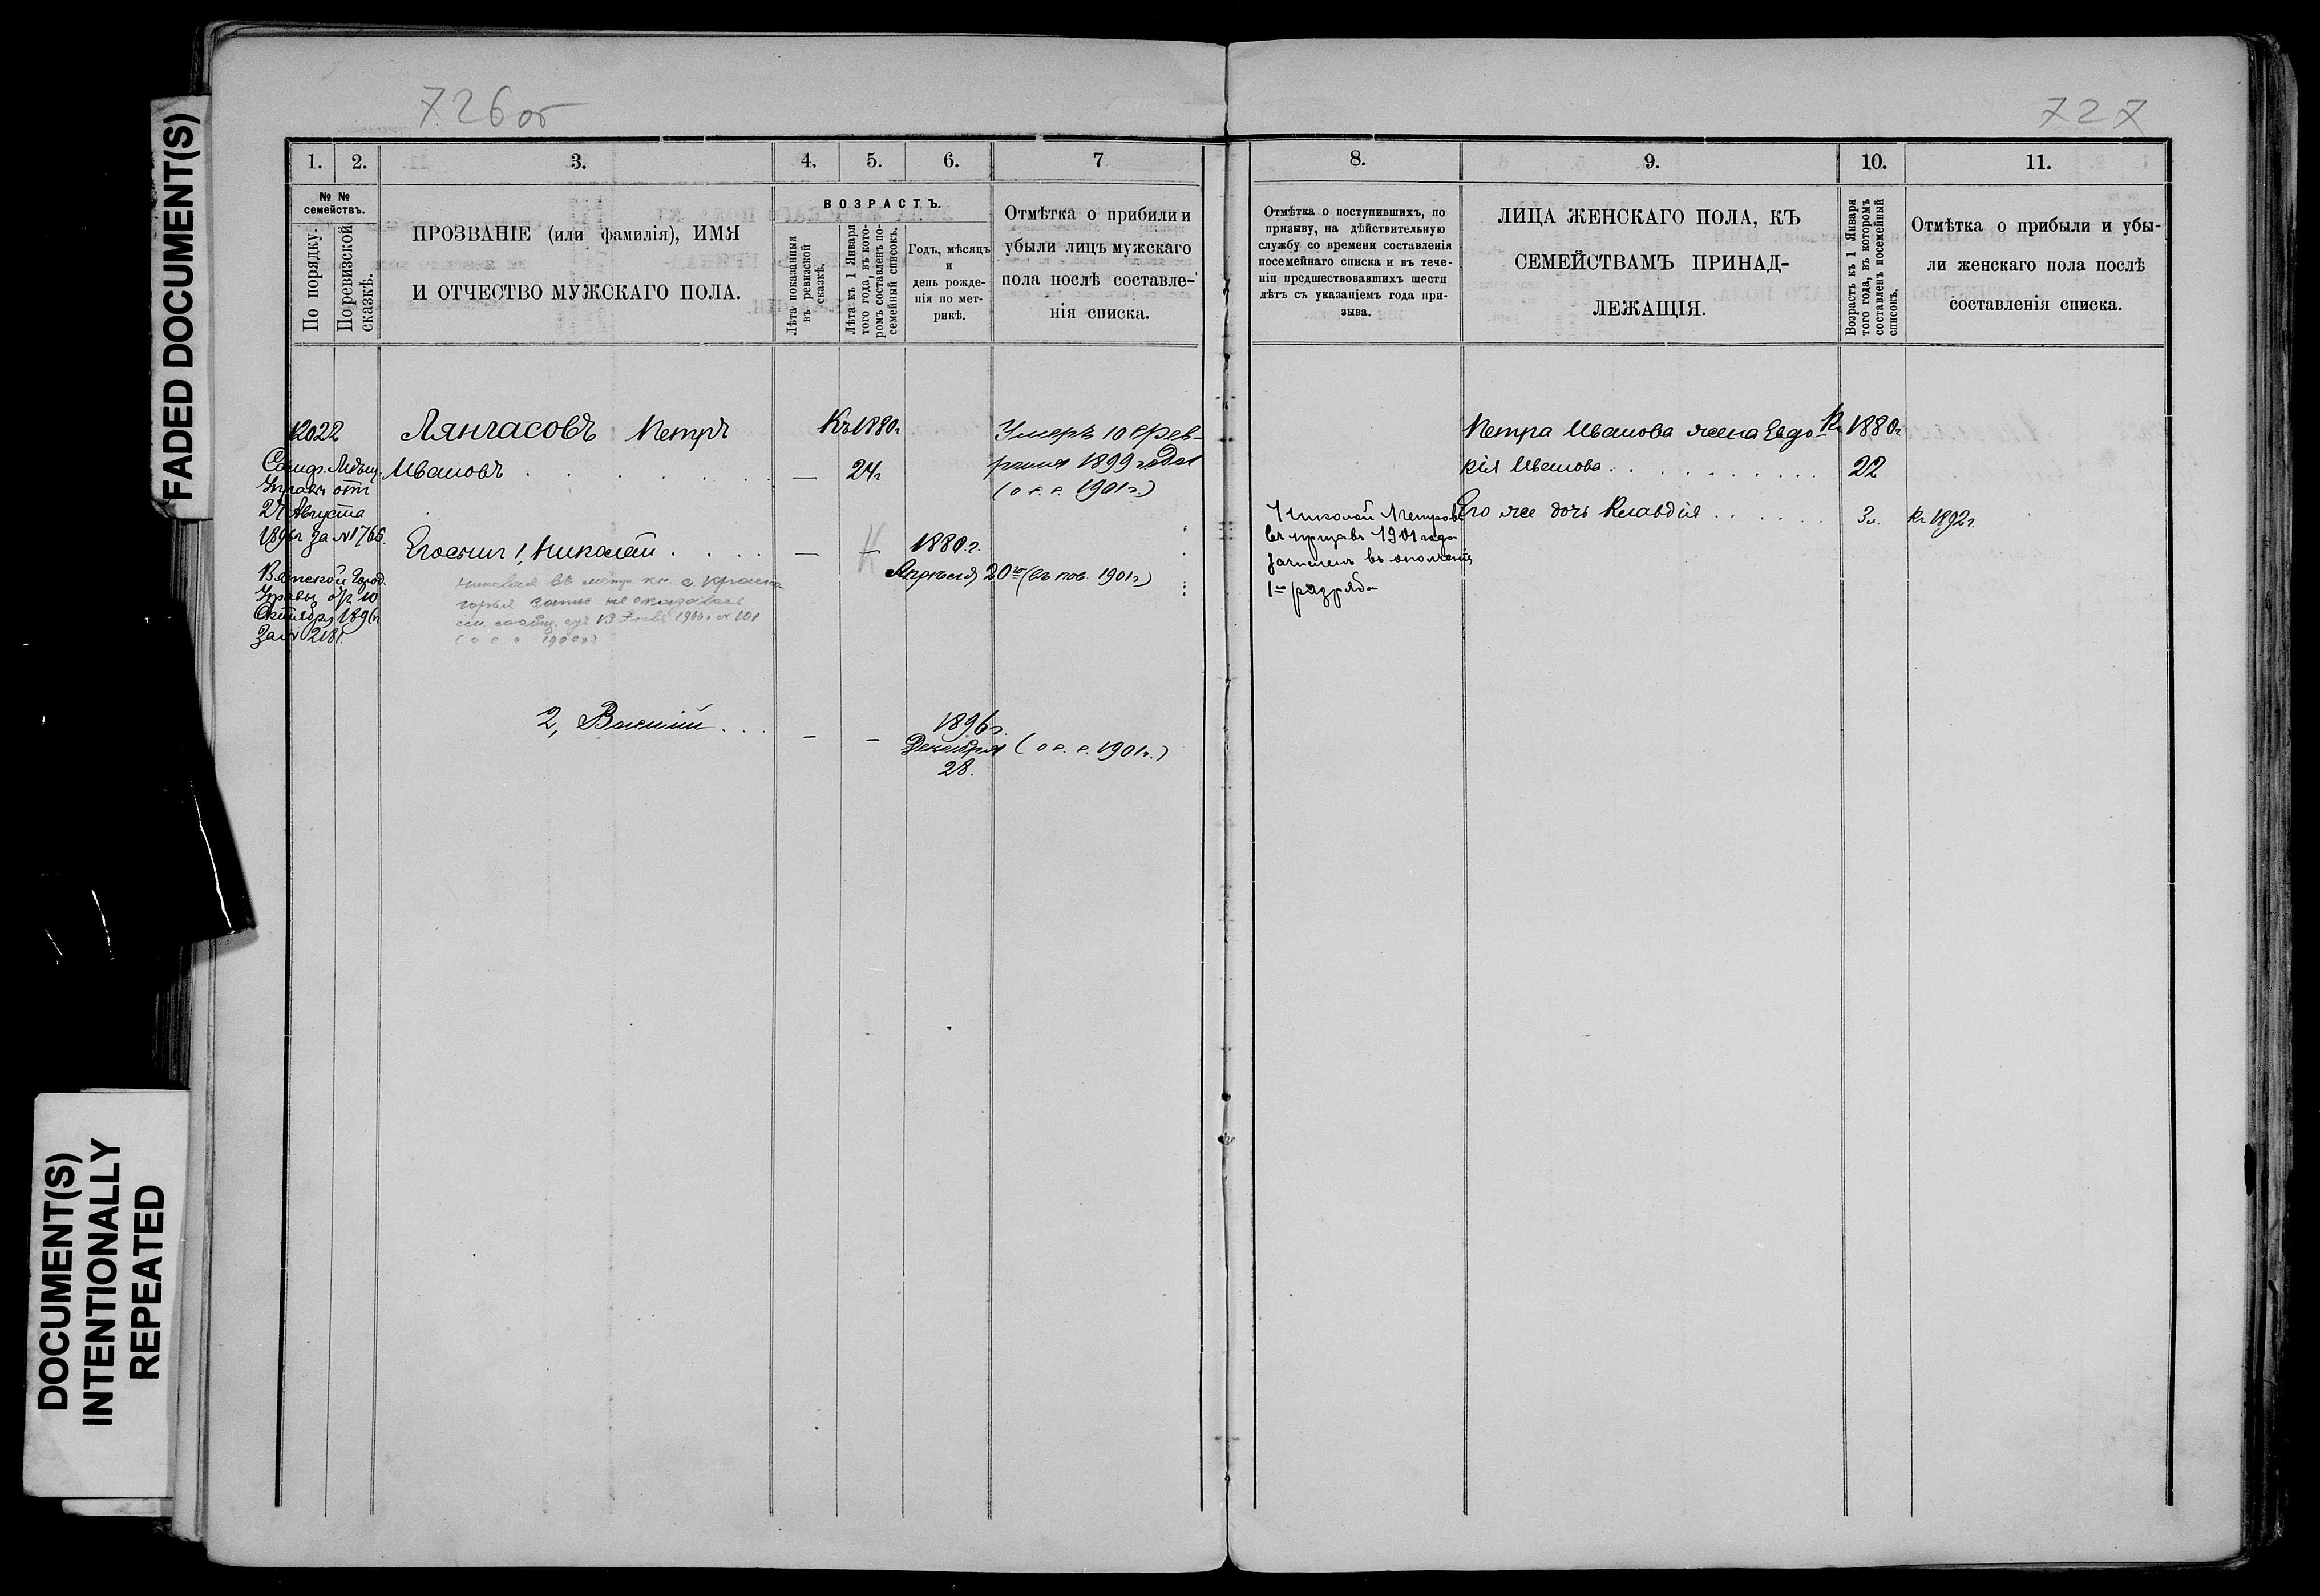 FADED DOCUMENT(S)
DOCUMENT(S)
INTENTIONALLY
REPEATED
726об
1. 2. 3. 4. 5. 6. 7
№ №
семействъ.
По порядку.
По ревизской
сказкѣ.
ПРОЗВАНІЕ (или фамилія), ИМЯ
И ОТЧЕСТВО МУЖСКАГО ПОЛА.
ВОЗРАСТЪ.
Лѣта показанныя
въ ревизской
сказкѣ.
Лѣта къ 1 Января
того года, въ кото-
ромъ составленъ по-
семейный списокъ.
Годъ, мѣсяцъ
и
день рожде-
нія по мет-
рикѣ.
Отмѣтка о прибыли и
убыли лицъ мужскаго
пола послѣ составле-
нія списка.
2022
Лянгасовъ Петръ
Ивановъ
—
Къ 1880г
24г
Умеръ 10 Фев-
раля 1899 года
(о с. с. 1901г.)
Управ отъ
27 Августа
1896г за №1766.
Вятской Город.
Управы отъ 10
Октября 1896г
за № 2181.
Его сыни 1, Николай
—
—
1880 г.
Апрѣля 20го (въ пов. 1901г)
(о с с 1900г)
2, Василій
—
—
1896г.
Декабря (о с. с. 1901г.)
28.
727
8. 9. 10. 11.
Отмѣтка о поступившихъ, по
призыву, на дѣйствительную
службу со времени составленія
посемейнаго списка и въ тече-
ніи предшествовавшихъ шести
лѣтъ съ указаніемъ года при-
зыва.
ЛИЦА ЖЕНСКАГО ПОЛА, КЪ
СЕМЕЙСТВАМЪ ПРИНАД-
ЛЕЖАЩІЯ.
Возрастъ къ 1 Января
того года, въ которомъ
составленъ посемейный
списокъ.
Отмѣтка о прибыли и убы-
ли женскаго пола послѣ
составленія списка.
Петра Иванова жена Евдо-
кія Иванова
Къ 1880г
22
Его же дочь Клавдія
3л.
Къ 1892г
Николай Петровъ
въ призывъ 1901 года
зачисленъ въ ополченіе
1го разряда